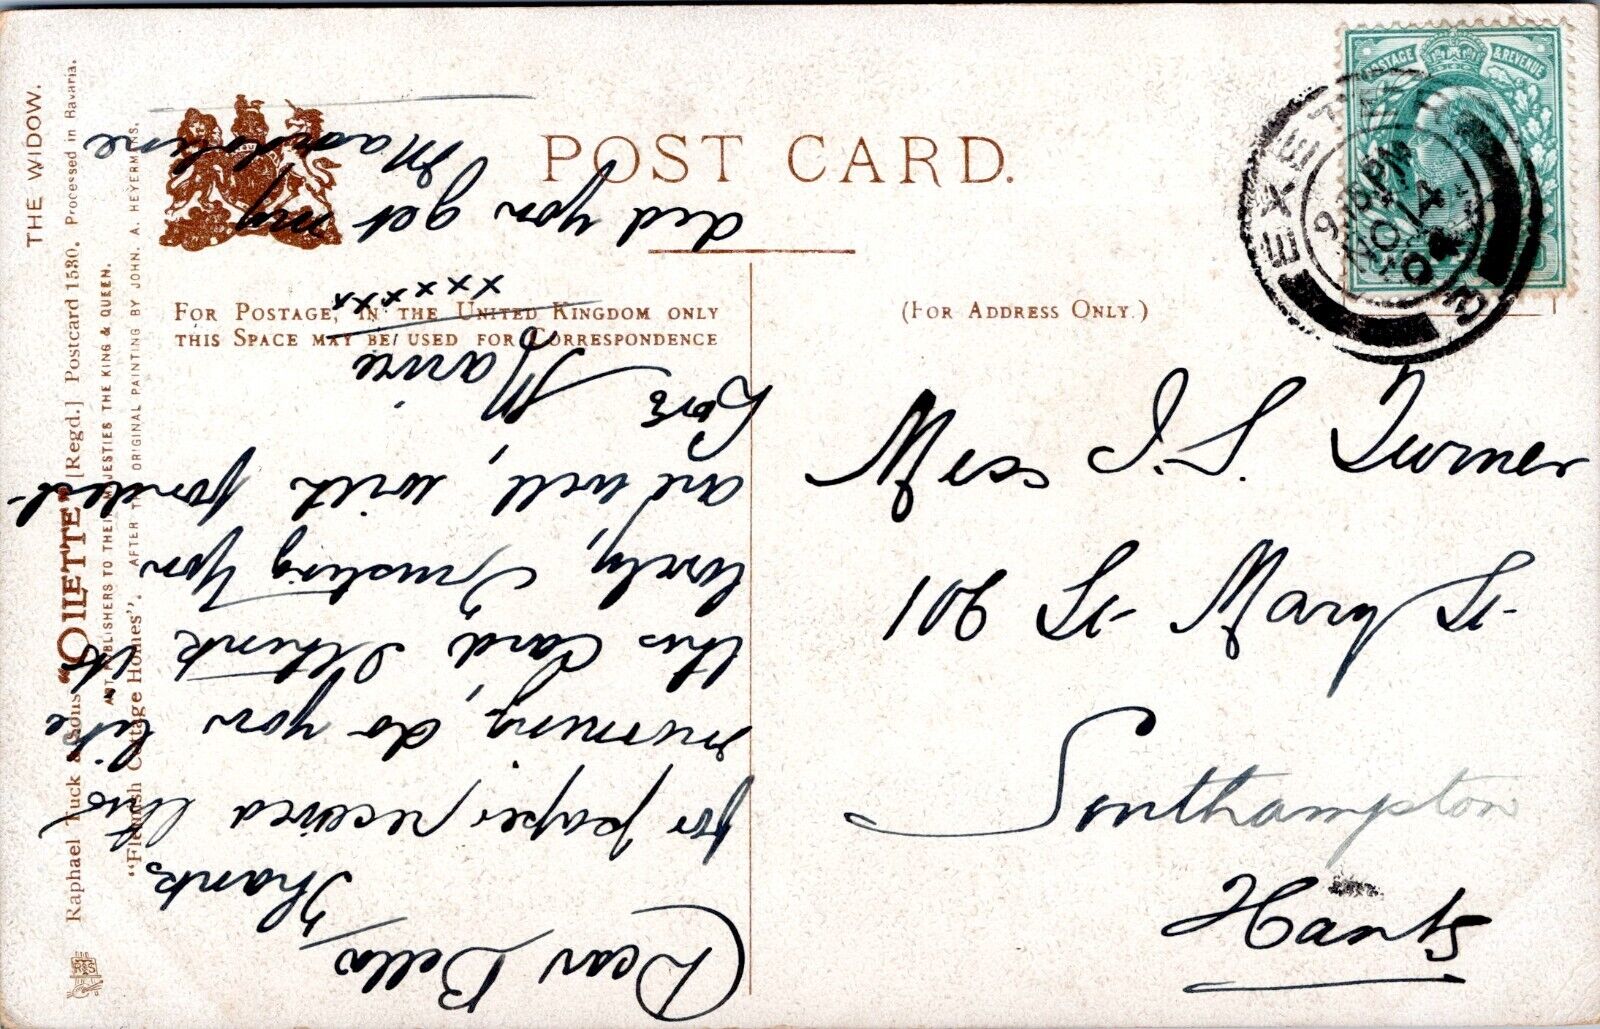 THE WIDOW.
Raphael Tuck & Sons' "OILETTE" [Regd.] Postcard 1530. Processed in Bavaria.
ART PUBLISHERS TO THEIR MAJESTIES THE KING & QUEEN.
"Flemish Cottage Homes". AFTER THE ORIGINAL PAINTING BY JOHN. A. HEYERMANS.
POST CARD.
FOR POSTAGE, IN THE UNITED KINGDOM ONLY
THIS SPACE MAY BE USED FOR CORRESPONDENCE
(FOR ADDRESS ONLY.)
POSTAGE & REVENUE
EXETER
9.30 PM
NO 4
04
3
Miss I. S. Turner
201 St Mary St
Southampton
Hants
Dear Bella,
Thanks,
for paper received this
morning, do you like
this card, I think it
lovely, Trusting you
are well, with fondest
Love Marine
xxxxxx
did you get my
Mandoline